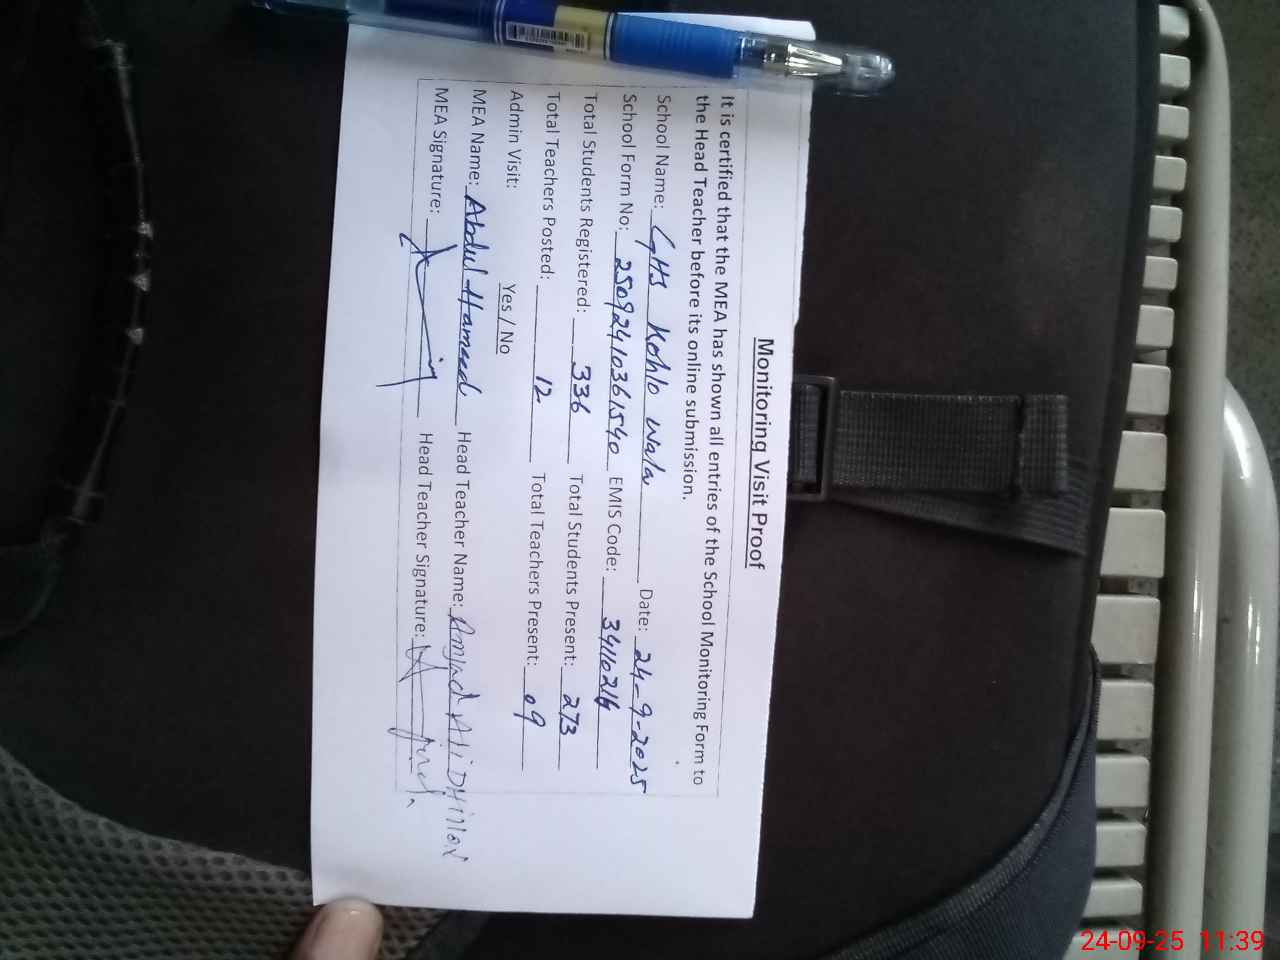 Monitoring Visit Proof
It is certified that the MEA has shown all entries of the School Monitoring Form to
the Head Teacher before its online submission.
School Name: GHS Kohlo Wala Date: 24-9-2025
School Form No: 25092410361540 EMIS Code: 34110216
Total Students Registered: 336 Total Students Present: 273
Total Teachers Posted: 12 Total Teachers Present: 09
Admin Visit: Yes / No
MEA Name: Abdul Hameed Head Teacher Name: Amjad Ali DHillon
MEA Signature: Head Teacher Signature:
24-09-25 11:39